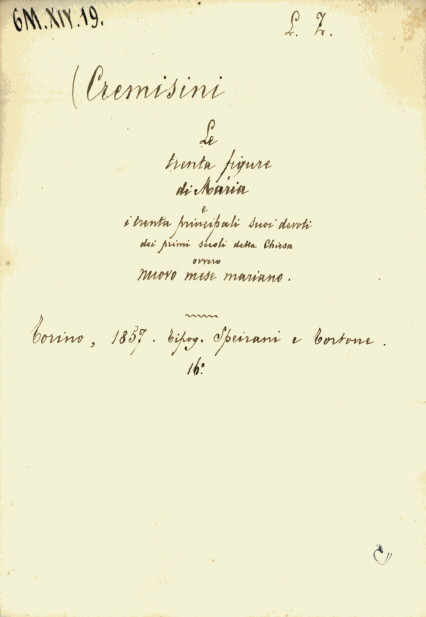 6M.XIV.19.
L. Z.
(Cremisini
Le
trenta figure
di Maria
e
i trenta principali suoi devoti
dei primi secoli della Chiesa
ovvero
nuovo mese mariano.
Torino, 1857. Tipog. Speirani e Tortone.
16°